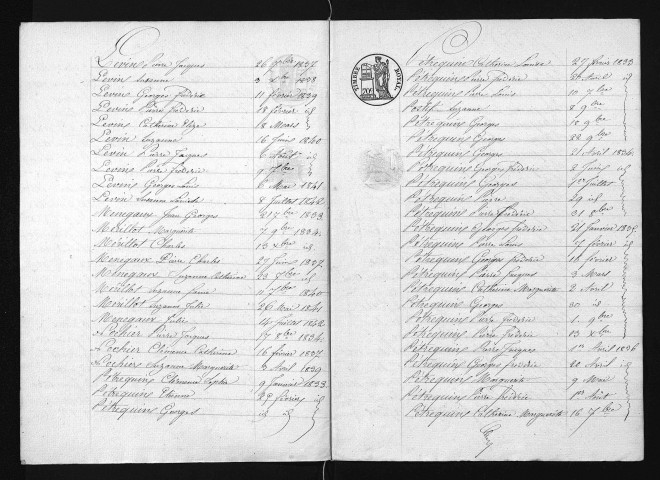 Levin Pierre Jacques 26 9bre 1837
Levin Suzanne 1838
Levin Georges Frédéric 11 février 1839
Levin Pierre Frédéric 18 février id
Levin Catherine Elize 8 Mars
Levin Suzanne 16 Juin 1840
Levin Pierre Jacques 6 Août id
Levin Pierre Frédéric 9 7bre
Levin Georges Louis 6 Mai 1841
Levin Suzanne 8 Juillet 1842
Menegaux Jean Georges 21 7bre 1833
Mouillot Marguerite 7 9bre 1834
Mouillot Charles 13 Xbre id
Menegaux Pierre Charles 27 Juin 1837
Menegaux Suzanne Catherine 23 7bre id
Mouillot Suzanne 1840
Mouillot Suzanne Julie 26 Mai 1841
Menegaux Julie 14 Juillet 1842
Pochier Pierre Jacques 17 8bre 1834
Pochier Clémence Catherine 16 février 1837
Pochier Suzanne Marguerite 3 Avril 1839
Pétrequin Clémence 9 Janvier 1833
Pétrequin Etienne 22 février id
Pétrequin Georges id id
TIMBRE ROYAL
20c
Pétrequin Catherine Louise 27 février 1833
Pétrequin Pierre Frédéric Août id
Pétrequin Pierre Louis 10 7bre
Suzanne 8 9bre
Pétrequin Georges 18 9bre
Pétrequin Georges 22 9bre
Pétrequin Georges Avril 1834
Pétrequin Georges Frédéric 2 Juin id
Pétrequin Georges 1er Juillet
Pétrequin Pierre 29 id
Pétrequin Pierre Frédéric 31 8bre
Pétrequin Georges Frédéric 21 Janvier 1835
Pétrequin Pierre Louis 7 février id
Pétrequin Georges Frédéric 16 février
Pétrequin Pierre Jacques 3 Mars
Pétrequin Catherine Marguerite 2 Avril
Pétrequin Georges 30 id
Pétrequin Pierre Frédéric 1 9bre
Pétrequin Pierre Frédéric 13 Xbre
Pétrequin Pierre Jacques 1er Avril 1836
Pétrequin Georges Frédéric 20 Avril id
Pétrequin Marguerite 9 Mai
Pétrequin Pierre Frédéric 1er Août
Pétrequin Catherine Marguerite 16 7bre